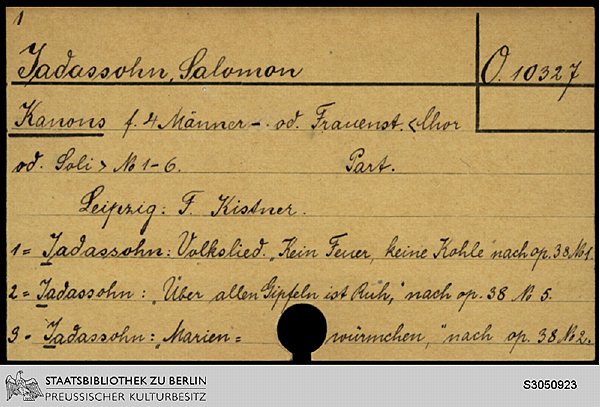 1
Jadassohn, Salomon
O. 10327
Kanons f. 4 Männer- od. Frauenst. <Chor
od. Soli> No 1-6. Part.
Leipzig: F. Kistner.
1= Jadassohn: Volkslied. „Kein Feuer, keine Kohle" nach op. 38 No 1.
2= Jadassohn: „Über allen Gipfeln ist Ruh," nach op. 38 No 5.
3= Jadassohn: „Marien= würmchen," nach op. 38 No 2.
STAATSBIBLIOTHEK ZU BERLIN
PREUSSISCHER KULTURBESITZ
S3050923